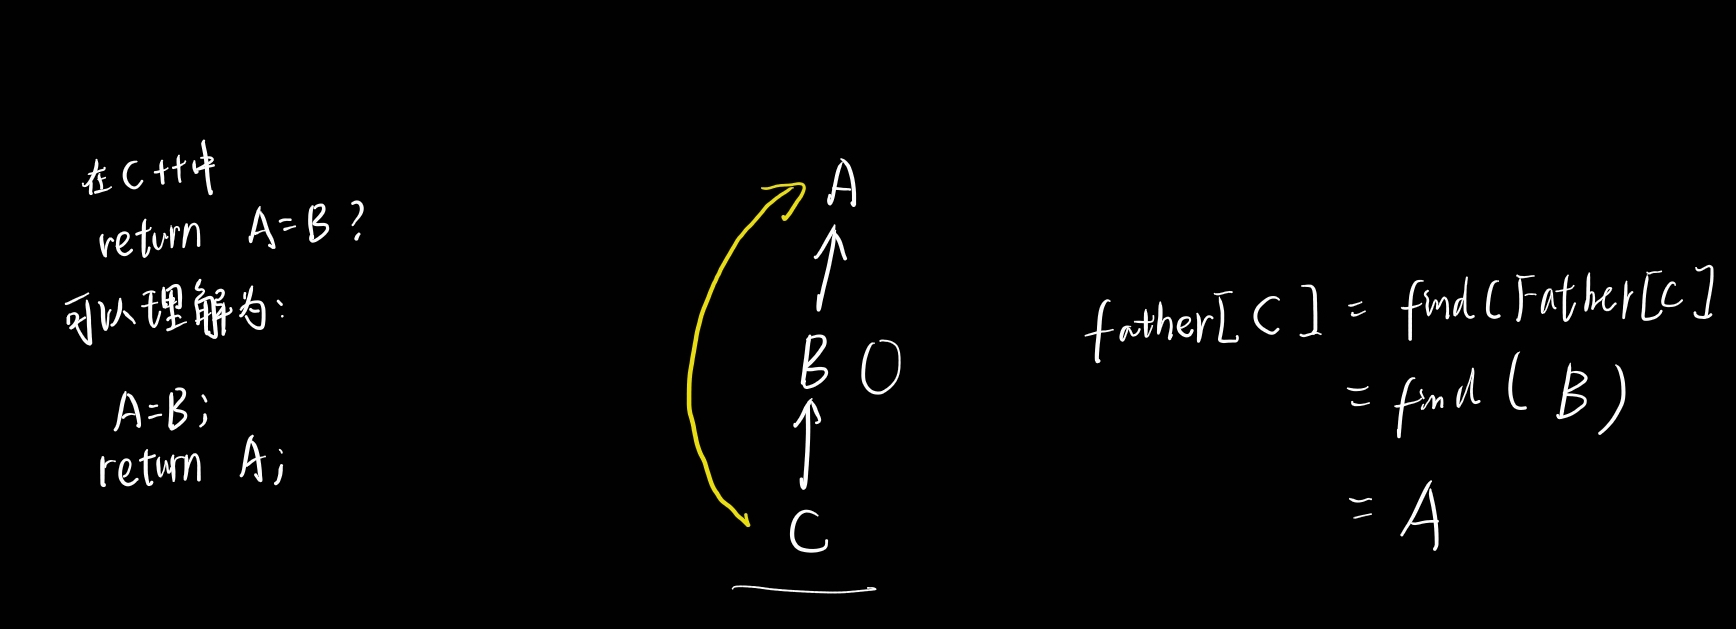 在C++中
return A=B?
可以理解为:
A=B;
return A;
A
B O
C
father[C] = find(Father[C]
= find(B)
= A